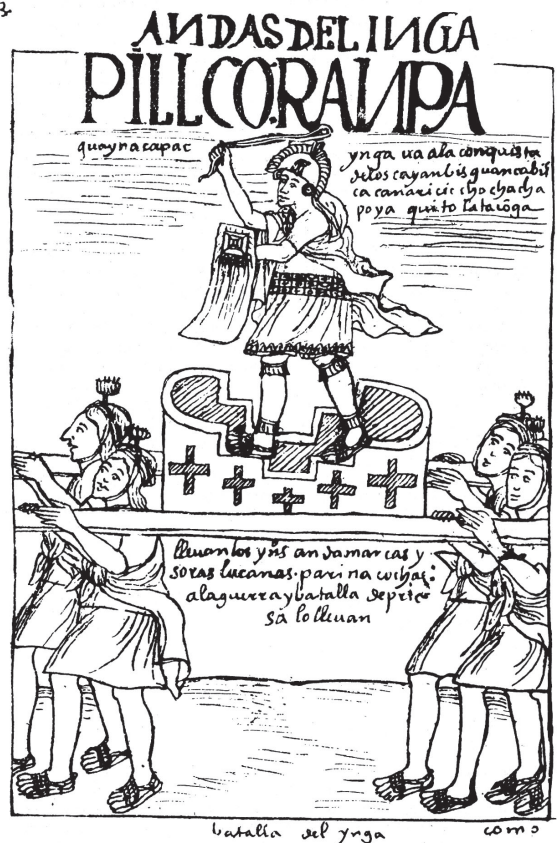 ANDAS DEL INGA
PILLCORANPA
guaynacapac
ynga ua ala conquista
delos cayanbis guancabil
ca canari ciccho chacha
poya quito lataconga
lleuanlos yns andamarcas y
soras lucanas · parinacochas
a la guerra y batalla de prie
sa lo lleuan
batalla del ynga
como